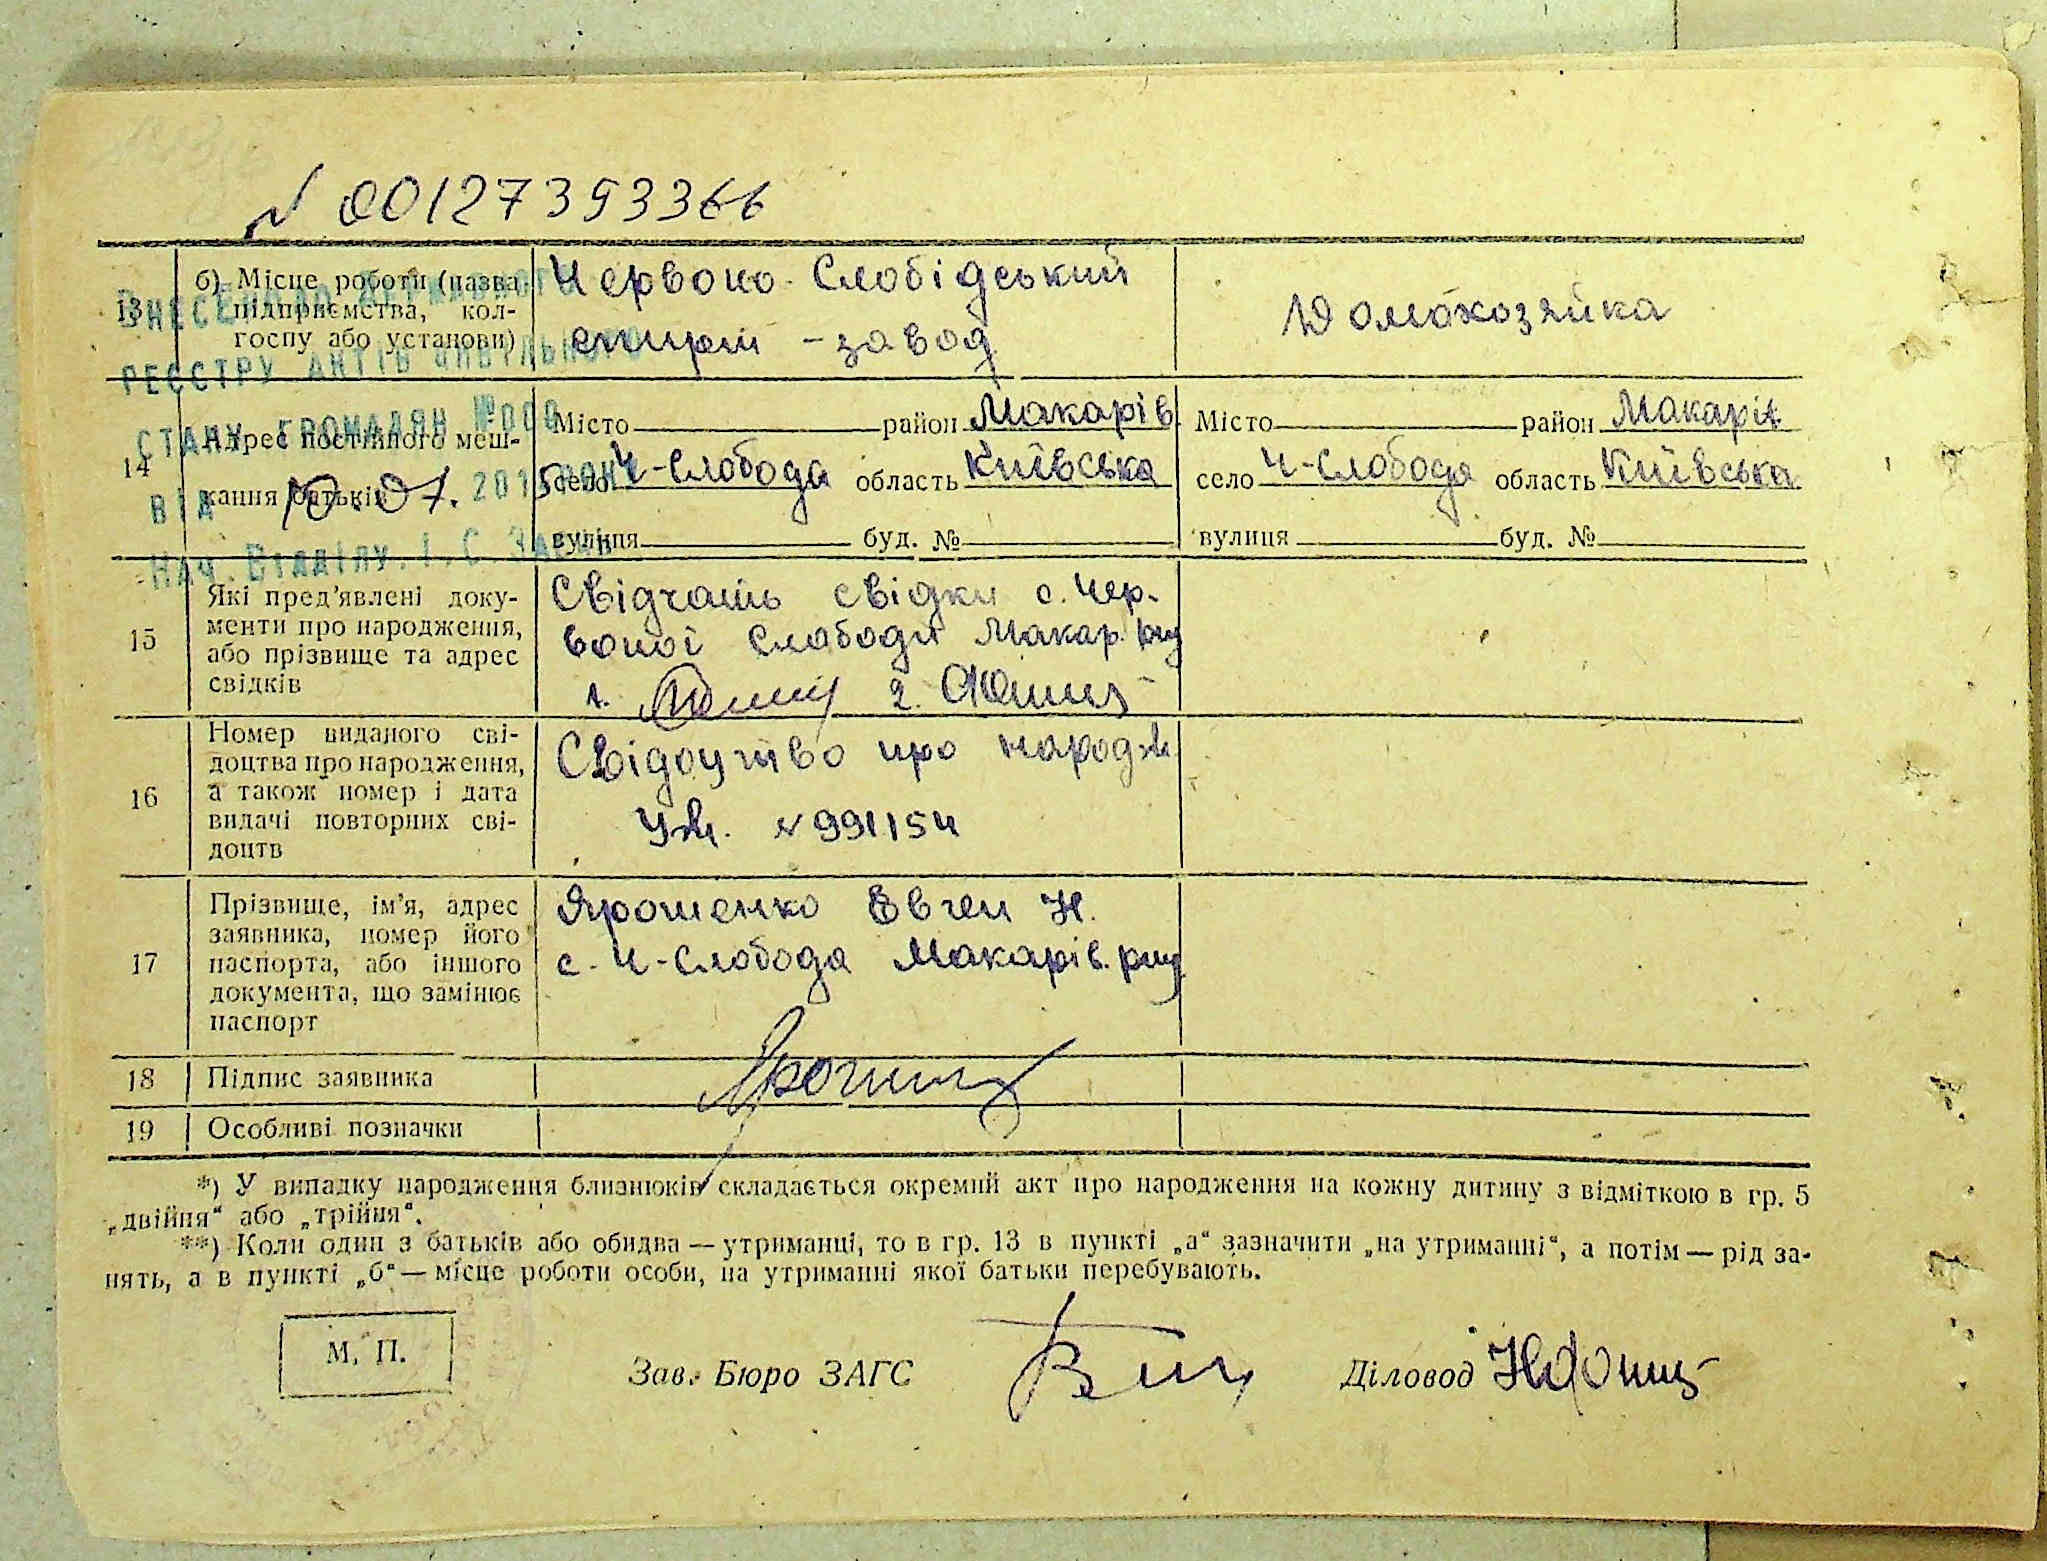 N 00127393366
13
б) Місце роботи (назва
підприємства, кол-
госпу або установи)
Червоно-Слобідський
спирт-завод
Домохозяйка
ВНЕСЕНО ДО ДЕРЖАВНОГО
РЕЄСТРУ АКТІВ ЦИВІЛЬНОГО
СТАНУ ГРОМАДЯН №000
ВІД 10.07. 2015
Нач. Відділу. І.С.
14
Адрес постійного меш-
кання батьків
Місто район Макарів
село Ч-Слобода область Київська
вулиця буд. №
Місто район Макарів
село Ч-Слобода область Київська
вулиця буд. №
15
Які пред'явлені доку-
менти про народження,
або прізвище та адрес
свідків
Свідчать свідки с. Чер-
воної Слободи Макар. р-ну
1. 2.
16
Номер виданого сві-
доцтва про народження,
а також номер і дата
видачі повторних сві-
доцтв
Свідоцтво про народж.
УЖ. N 991154
17
Прізвище, ім'я, адрес
заявника, номер його
паспорта, або іншого
документа, що замінює
паспорт
Ярошенко Евген Н.
с. Ч-Слобода Макарів. р-ну
18
Підпис заявника
19
Особливі позначки
*) У випадку народження близнюків складається окремий акт про народження на кожну дитину з відміткою в гр. 5
„двійня“ або „трійня“.
**) Коли один з батьків або обидва — утриманці, то в гр. 13 в пункті „а“ зазначити „на утриманні“, а потім — рід за-
нять, а в пункті „б“ — місце роботи особи, на утриманні якої батьки перебувають.
М. П.
Зав. Бюро ЗАГС
Діловод